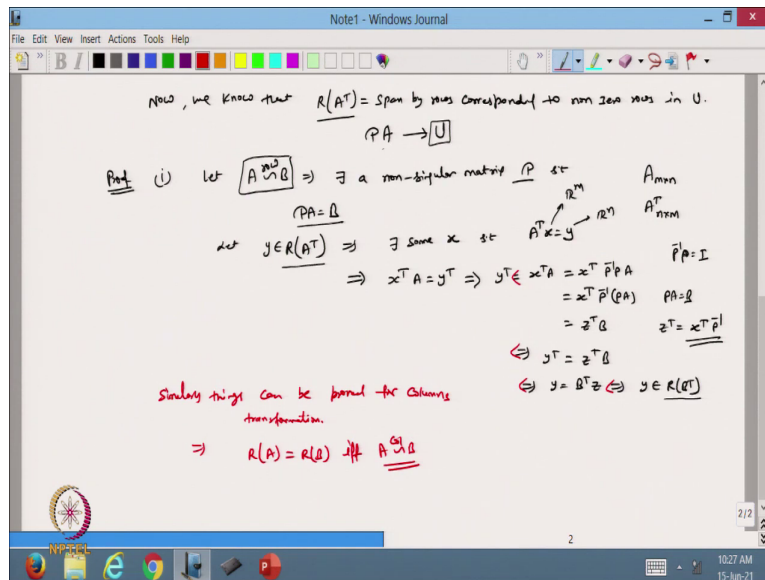 Note1 - Windows Journal
File Edit View Insert Actions Tools Help
Now, we know that R(Aᵀ) = span by rows corresponded to non zero rows in U.
PA → U
Proof (i) let A row∽ B ⇒ ∃ a non-singular matrix P st
PA = B
A m×n
Aᵀ n×m
let y ∈ R(Aᵀ) ⇒ ∃ some x st Aᵀx = y
ℝᵐ
ℝⁿ
P⁻¹P = I
⇒ xᵀA = yᵀ ⇒ yᵀ = xᵀA = xᵀP⁻¹PA
= xᵀP⁻¹(PA) PA = B
= zᵀB zᵀ = xᵀP⁻¹
⇔ yᵀ = zᵀB
⇔ y = Bᵀz ⇔ y ∈ R(Bᵀ)
Similarly things can be proved for columns
transformation.
⇒ R(A) = R(B) iff A col∽ B
NPTEL
2/2
2
10:27 AM
15-Jun-21